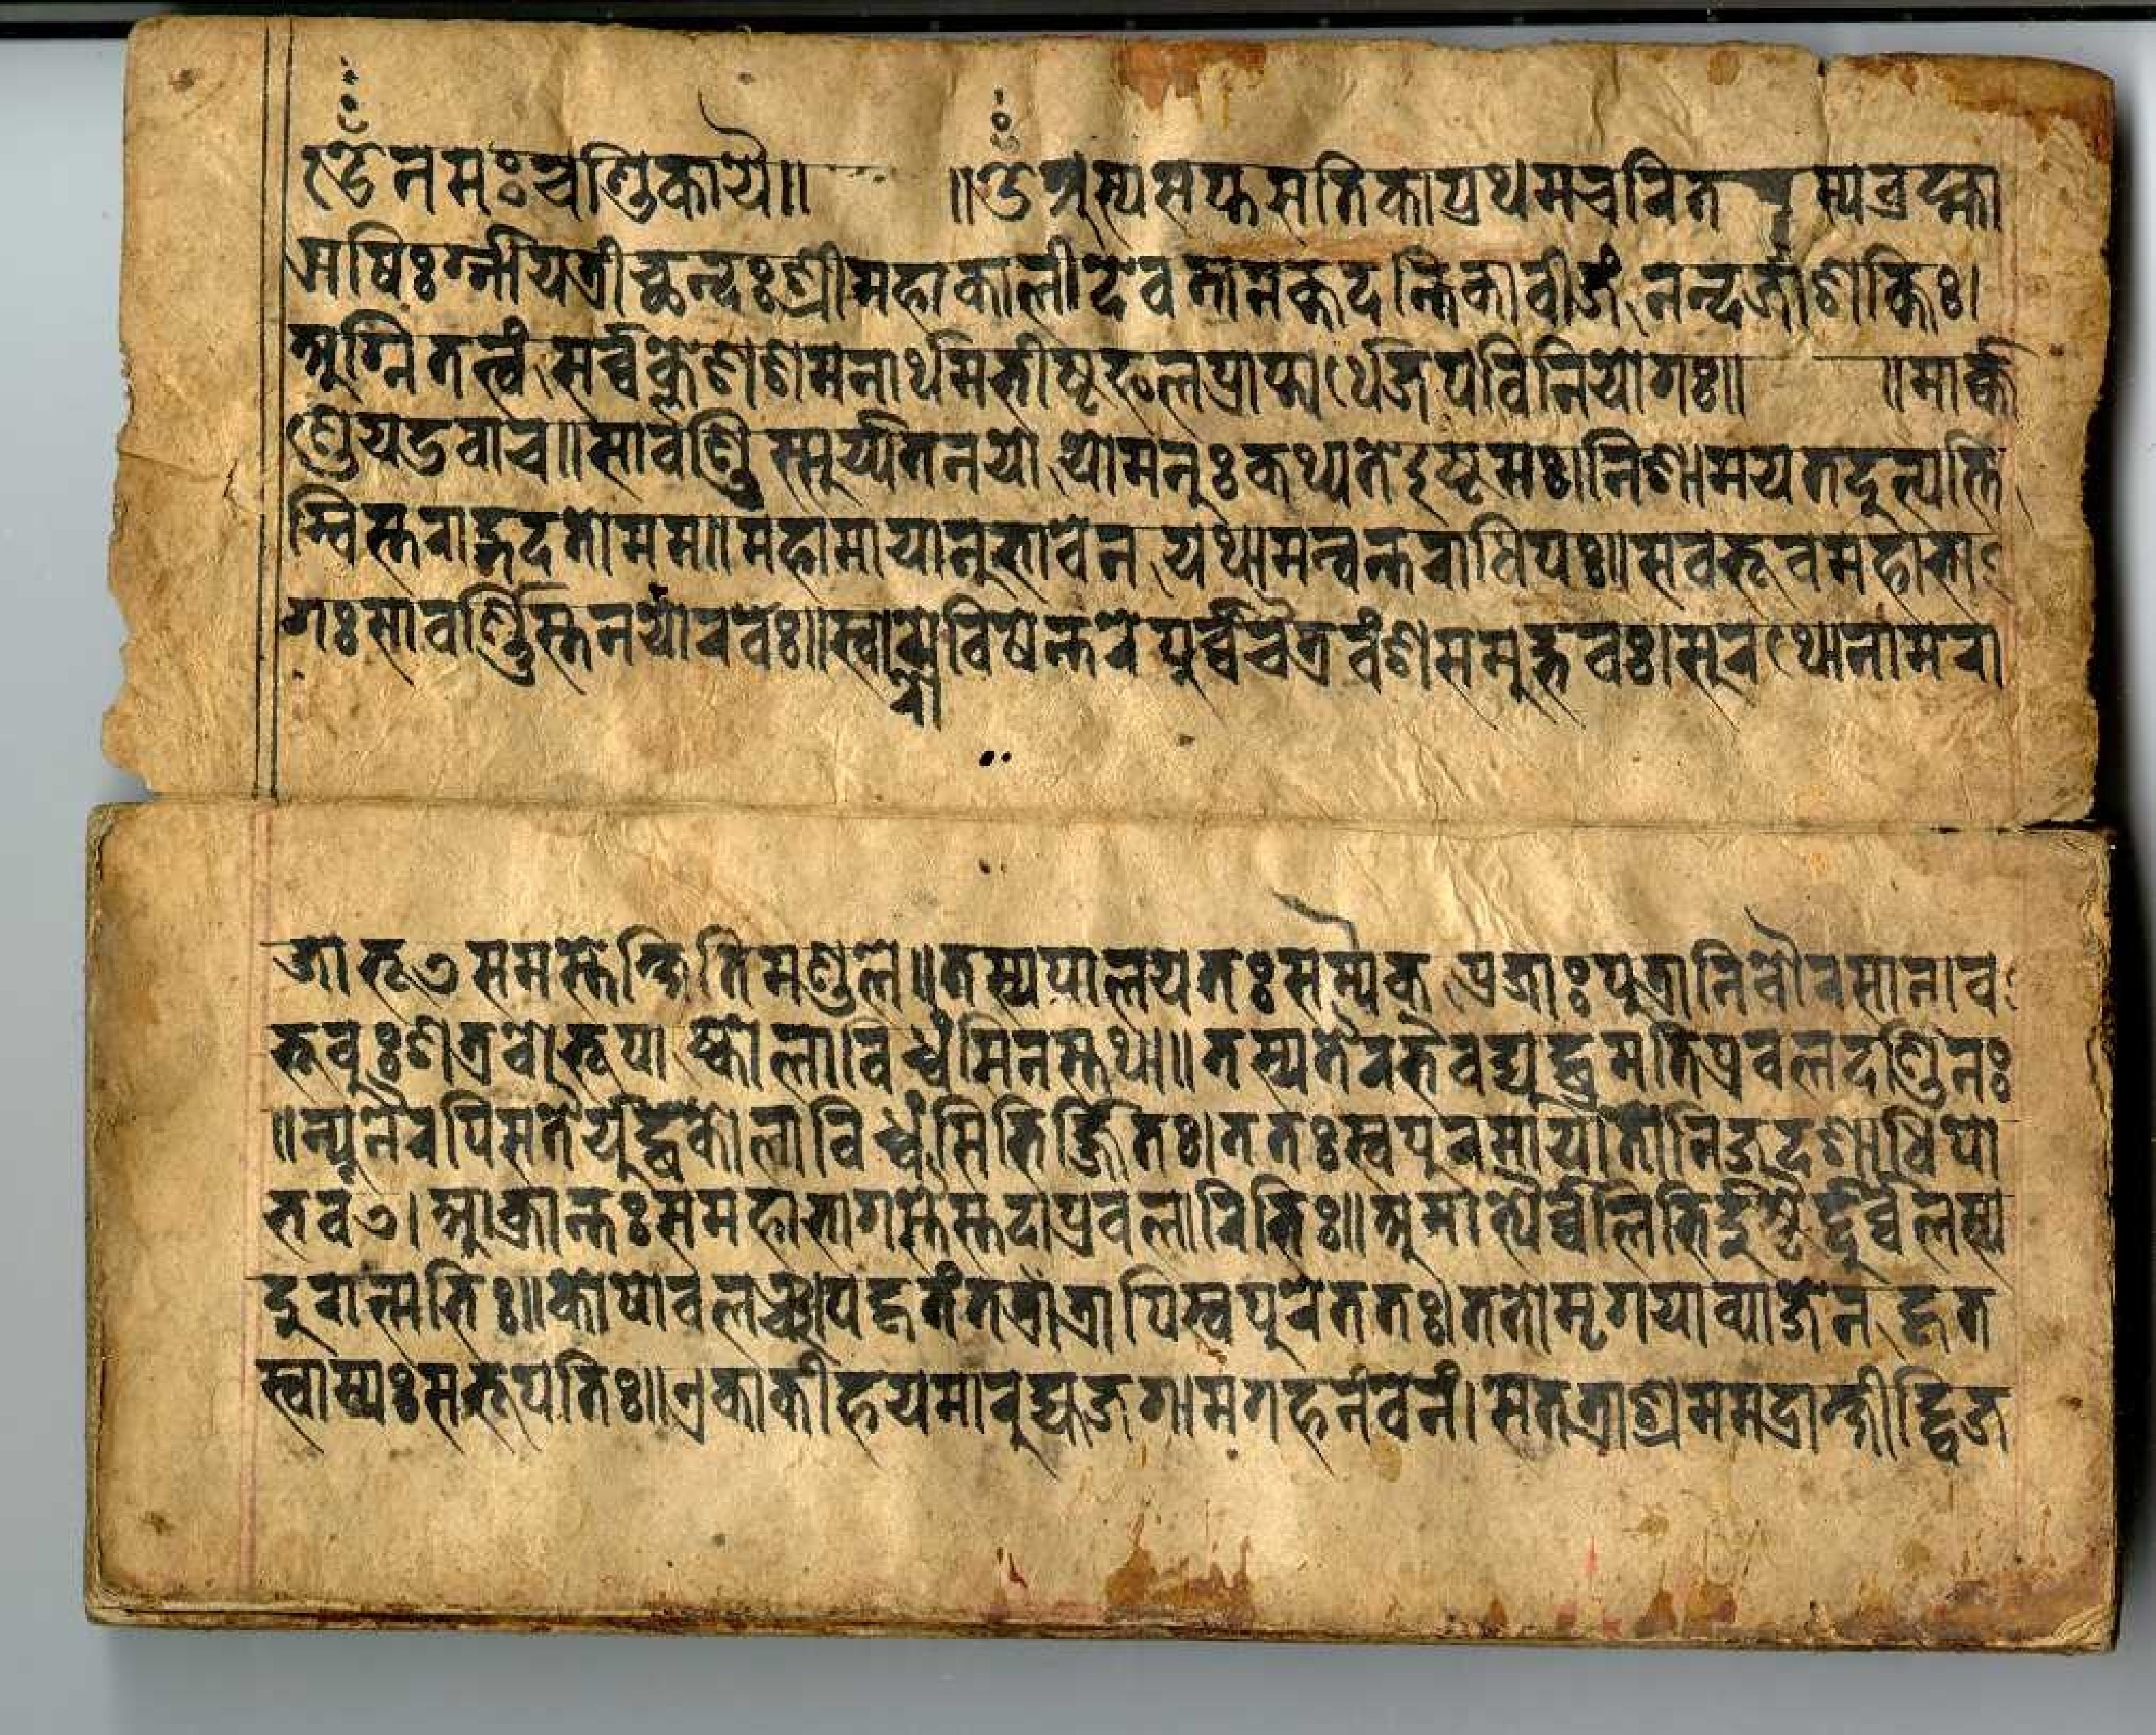 ॐ नमः चण्डिकायै॥ ॥ॐ अस्य सप्तसतिकाप्रथमचरितस्य ब्रह्मा
ऋषिः र्गायत्रीच्छन्दः श्रीमहाकालीदेवता रक्तदन्तिकावीजं नन्दजाशक्तिः।
अग्नितत्त्वं सर्व्वक्लेशशमनार्थमभीष्टफलप्राप्त्यर्थे जपविनियोगः॥ ॥मार्क्क
ण्डेय उवाच॥ सावर्णि स्सूर्य्यतनयो यो मनुः कथ्यतेऽष्टमः। निशामय तदुत्पत्ति
म्विस्तराद्गदतो मम॥ महामायानुभावेन यथा मन्वन्तराधिपः॥ स वभूव महाभा
गः सावर्ण्णिस्तनयो रवेः॥ स्वारोचिषेन्तरे पुर्व्वं चैत्रवंशसमुद्भवः। सुरथो नाम रा
जाभूत् समस्ते क्षितिमण्डले॥ तस्य पालयतः सम्यक् प्रजाः पुत्रानिवौरसान्। व
भूवुः शत्रवो भूपा कोलाविध्वंसिनस्तथा॥ तस्य तैरभवद्युद्धमतिप्रवलदण्डिनः
॥ न्यूनैरपि स तैर्युद्धे कोलाविध्वंसिभिर्ज्जितः। ततः स्वपुरमायातो निजदेशाधिपो
भवत्। आक्रान्तः स महाभागस्तैस्तदा प्रवलारिभिः॥ अमात्यैर्व्वलिभिर्दुष्टैर्दुर्व्वलस्य
दुरात्मभिः॥ कोषो वलञ्चापहृतं तत्रापि स्वपुरे ततः। ततो मृगयाव्याजेन हृत
स्वाम्यः स भूपतिः॥ एकाकी हयमारुह्य जगाम गहनं वनं। स तत्राश्रममद्राक्षीद्द्विज